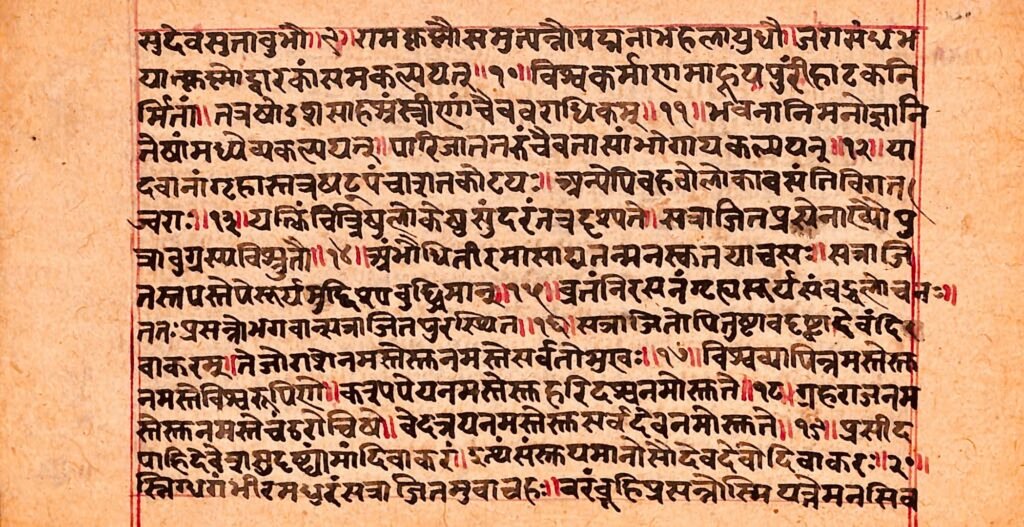 सुदेवसुतावुभौ॥९॥रामकृष्णौसमुत्पन्नौपद्मनाभहलायुधौ॥जरासंधभ
यात्कृष्णोद्वारकांसमकल्पयत्॥१०॥विश्वकर्माणमाहूयपुरींहाटकनि
र्मितां॥तत्रषोडशसाहस्रंस्त्रीणांचैववराधिकम्॥११॥भवनानिमनोज्ञानि
तेषांमध्येव्यकल्पयत्॥पारिजाततरुंचैवतासांभोगायकल्पयत्॥१२॥या
दवानांगृहास्तत्रषट्पंचाशतकोटयः॥अन्येपिबहवोलोकावसंतिविगत
ज्वराः॥१३॥यत्किंचित्त्रिषुलोकेषुसुंदरंतत्रदृश्यते॥सत्राजितप्रसेनाख्यौपु
त्रावुग्रस्यविश्रुतौ॥१४॥अंभोधितीरमासाद्यतन्मनस्कतयाचसः॥सत्राजि
तस्तपस्तेपेसूर्यमुद्दिश्यबुद्धिमान्॥१५॥व्रतंनिरसनंगृह्यसूर्यसंबद्धलोचनः॥
ततःप्रसन्नोभगवान्सत्राजितपुरस्थितः॥१६॥सत्राजितोपितुष्टावदृष्ट्वादेवंदि
वाकरम्॥तेजोराशेनमस्तेस्तुनमस्तेसर्वतोमुखः॥१७॥विश्वव्यापिन्नमस्तेस्तु
नमस्तेविश्वरूपिणे॥कश्यपेयनमस्तेस्तुहरिदश्वनमोस्तुते॥१८॥ग्रहराजनम
स्तेस्तुनमस्तेचंडरोचिषे॥वेदत्रयनमस्तेस्तुसर्वदेवनमोस्तुते॥१९॥प्रसीद
पाहिदेवेशसुदृष्ट्यामांदिवाकर॥इत्थंसंस्तूयमानोसौदेवदेवोदिवाकरः॥२०॥
स्निग्धगंभीरमधुरंसत्राजितमुवाचहः॥वरंब्रूहिप्रसन्नोस्मियत्तेमनसिव